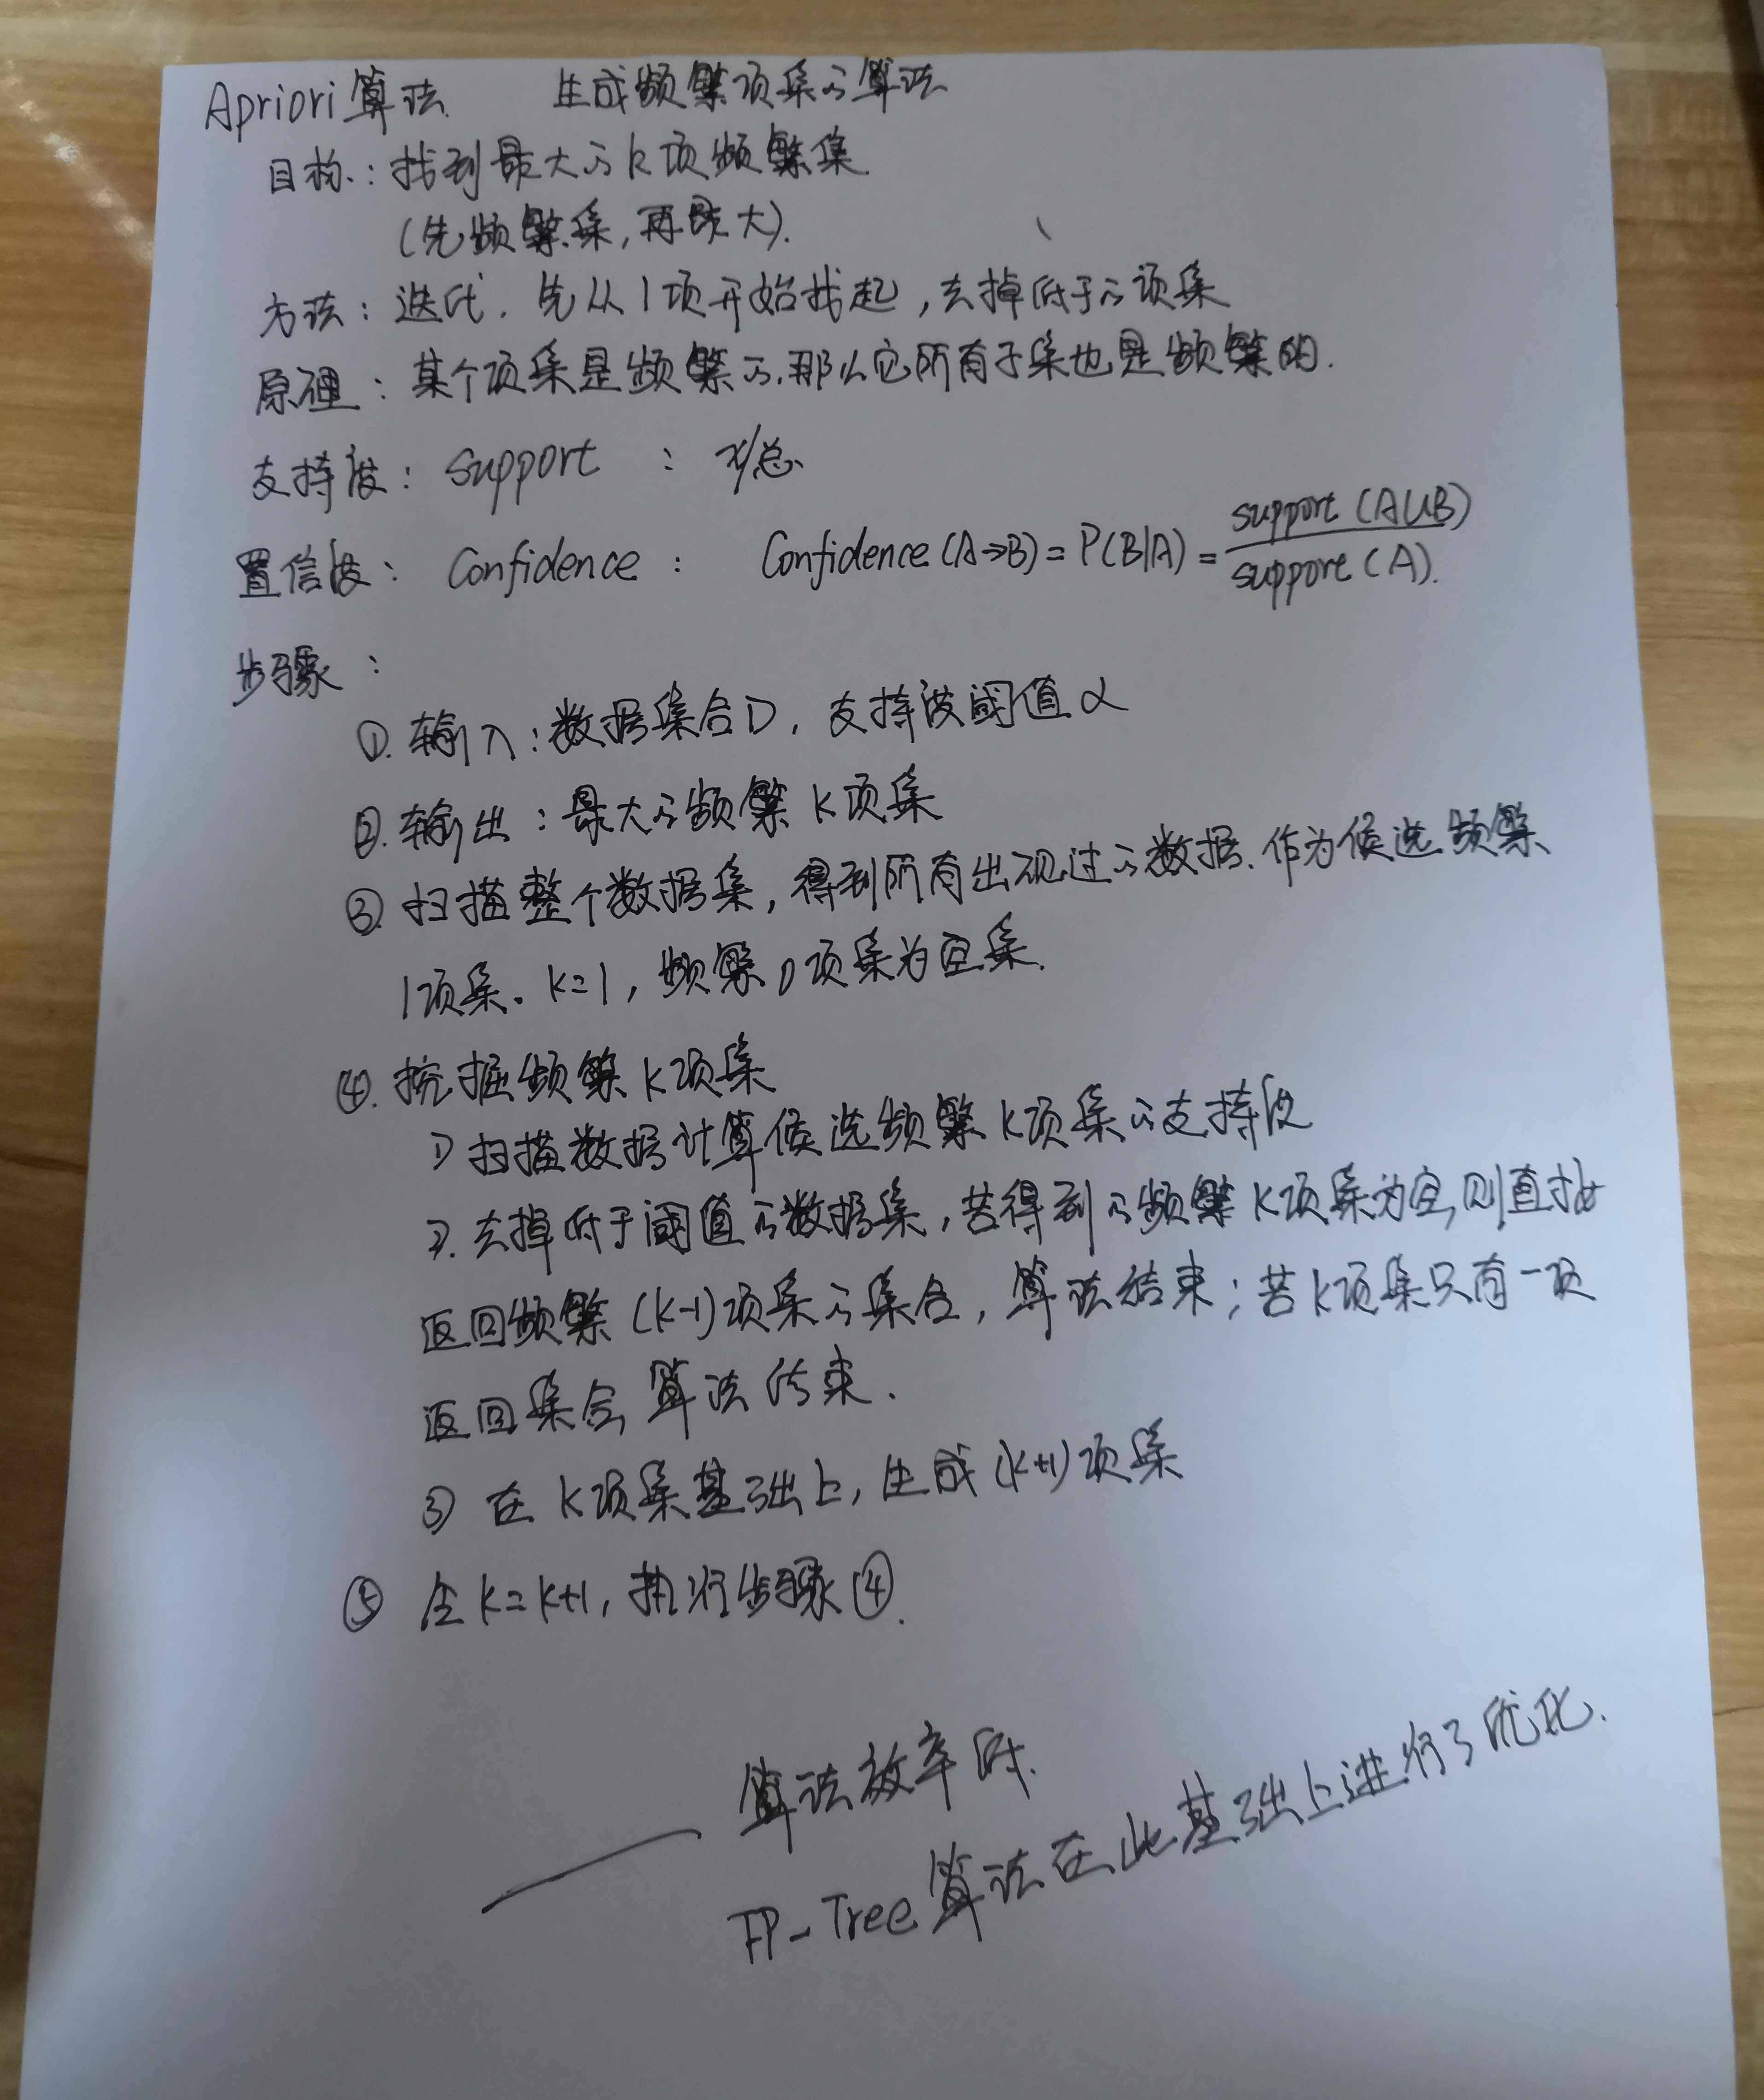 Apriori算法 生成频繁项集的算法
目标：找到最大的k项频繁集
（先频繁集，再最大）.
方法：迭代. 先从1项开始找起，去掉低于的项集
原理：某个项集是频繁的，那么它所有子集也是频繁的.
支持度：support ： 项/总
置信度：Confidence ： Confidence(A→B) = P(B|A) = support(A∪B) / support(A).
步骤：
①. 输入：数据集合D，支持度阈值α
②. 输出：最大的频繁k项集
③. 扫描整个数据集，得到所有出现过的数据. 作为候选频繁
1项集。k=1，频繁0项集为空集.
④. 挖掘频繁k项集
1) 扫描数据计算候选频繁k项集的支持度
2. 去掉低于阈值的数据集，若得到的频繁k项集为空，则直接
返回频繁(k-1)项集的集合，算法结束；若k项集只有一项
返回集合，算法结束.
3) 在k项集基础上，生成(k+1)项集
⑤ 令k=k+1，执行步骤④.
算法效率低.
FP-Tree算法在此基础上进行了优化.